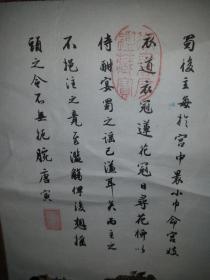 蜀後主每於宮中裹小巾命宮妓
衣道衣冠蓮花冠日尋花柳以
侍酣宴蜀之謠已溢耳矣而主之
不挹注之竟至濫觴俾後想搖
頭之令不無扼腕唐寅